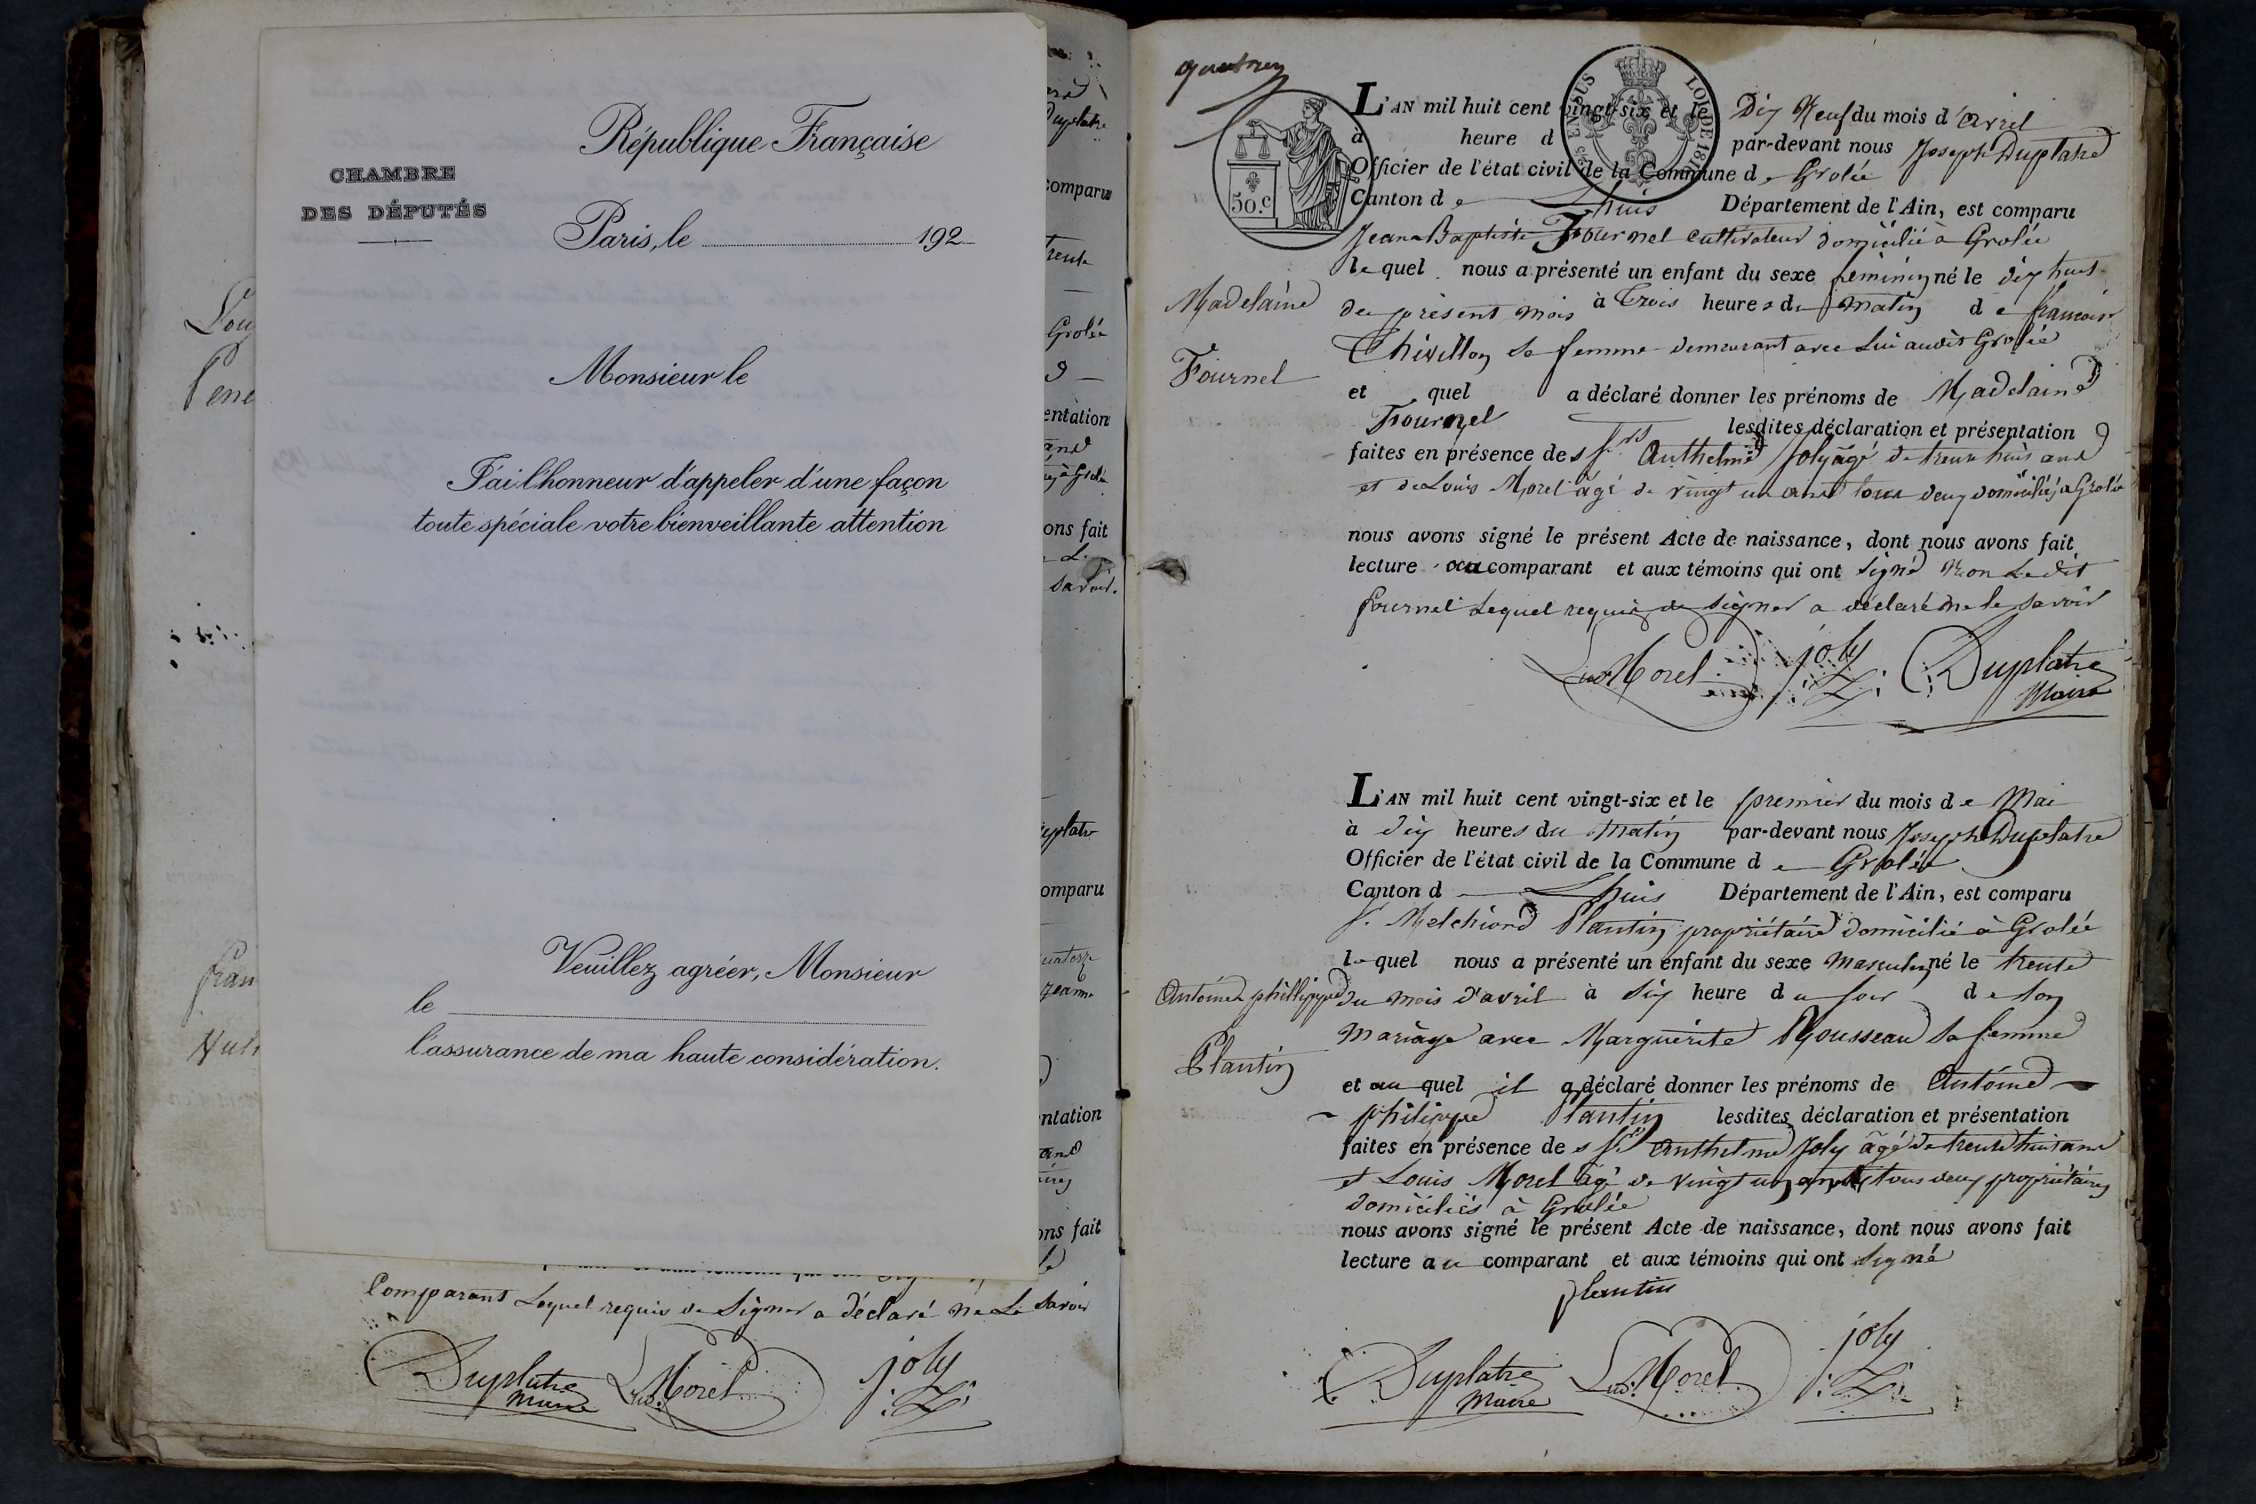 République Française
CHAMBRE
DES DÉPUTÉS
Paris, le 192
Monsieur le
J'ai l'honneur d'appeler d'une façon
toute spéciale votre bienveillante attention
Veuillez agréer, Monsieur
le
l'assurance de ma haute considération.
Duplatre
comparu
trente
Grolée
entation
ons fait
savoir.
Duplatre
omparu
quatorze
jeanne
ntation
ons fait
Comparant Lequel requis de Signer a déclaré ne Le Savoir
Duplatre Lud. Morel joly
Maire
L'AN mil huit cent vingt-six et le Dix Neuf du mois d'avril
à heure d par-devant nous Joseph Duplatre
Officier de l'état civil de la Commune de Grolée
Canton de Lhuis Département de l'Ain, est comparu
Jean Baptiste Fournel cultivateur domicilié à Grolée
lequel nous a présenté un enfant du sexe féminin né le dix huit
du présent mois à Trois heures du matin de francoise
Chivillon sa femme demeurant avec Lui audit Grolée
et quel a déclaré donner les prénoms de Madelaine
Fournel lesdites déclaration et présentation
faites en présence des Srs Anthelme Joly âgé de trente huit ans
et de Louis Morel âgé de vingt un ans tous deux domiciliés à Grolée
nous avons signé le présent Acte de naissance, dont nous avons fait
lecture au comparant et aux témoins qui ont signé Non Le dit
fournel Lequel requis de signer a déclaré ne le savoir
Lud Morel joly Duplatre
Maire
Madelaine
Fournel
50.c
EN SUS
LOI DE 1816
L'AN mil huit cent vingt-six et le premier du mois de Mai
à dix heures du matin par-devant nous Joseph Duplatre
Officier de l'état civil de la Commune de Grolée
Canton d Lhuis Département de l'Ain, est comparu
Sr. Melchiord Plantin propriétaire domicilié à Grolée
lequel nous a présenté un enfant du sexe masculin né le trente
du mois d'avril à six heure du soir de son
mariage avec Marguerite Mousseau sa femme
et au quel il a déclaré donner les prénoms de Antoine
philippe Plantin lesdites déclaration et présentation
faites en présence des Srs Anthelme Joly âgé de trente huit ans
et Louis Morel âgé de vingt un ans tous deux propriétaires
domiciliés à Grolée
nous avons signé le présent Acte de naissance, dont nous avons fait
lecture au comparant et aux témoins qui ont signé
plantin
Duplatre Lud. Morel joly
Maire
Antoine phillippe
Plantin